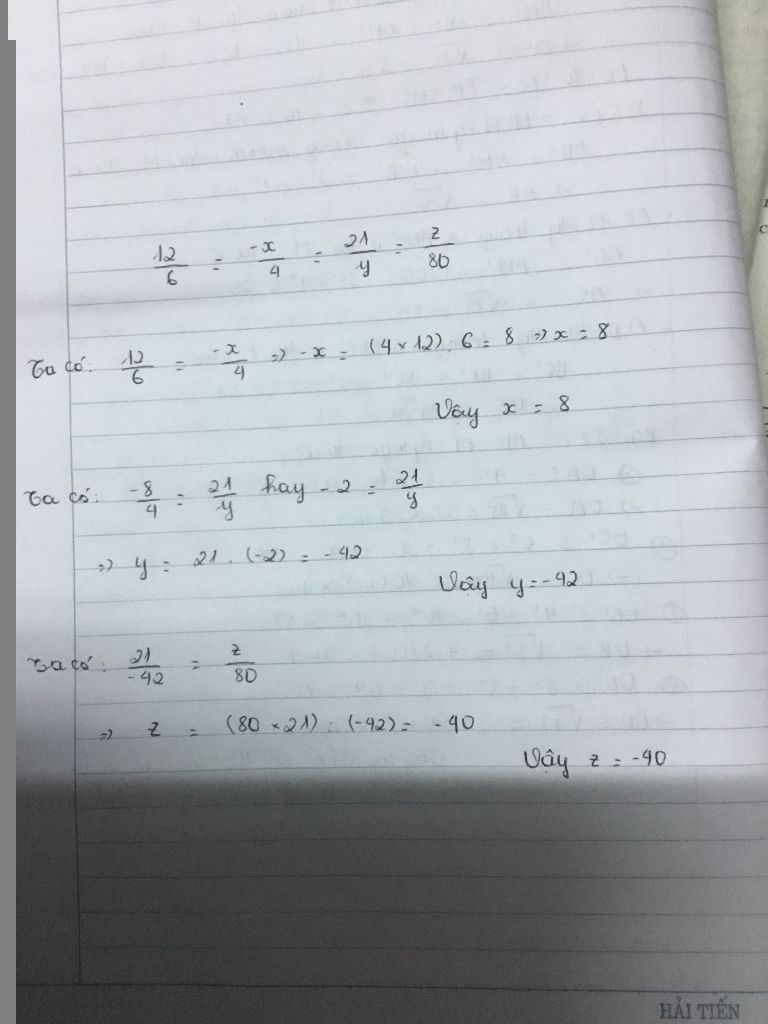 12/6 = -x/4 = 21/y = z/80
Ta có: 12/6 = -x/4 => -x = (4 × 12) . 6 = 8 => x = 8
Vậy x = 8
Ta có: -8/4 = 21/y hay -2 = 21/y
=> y = 21 . (-2) = -42
Vậy y = -42
Ta có: 21/-42 = z/80
=> z = (80 × 21) : (-42) = -40
Vậy z = -40
HẢI TIẾN